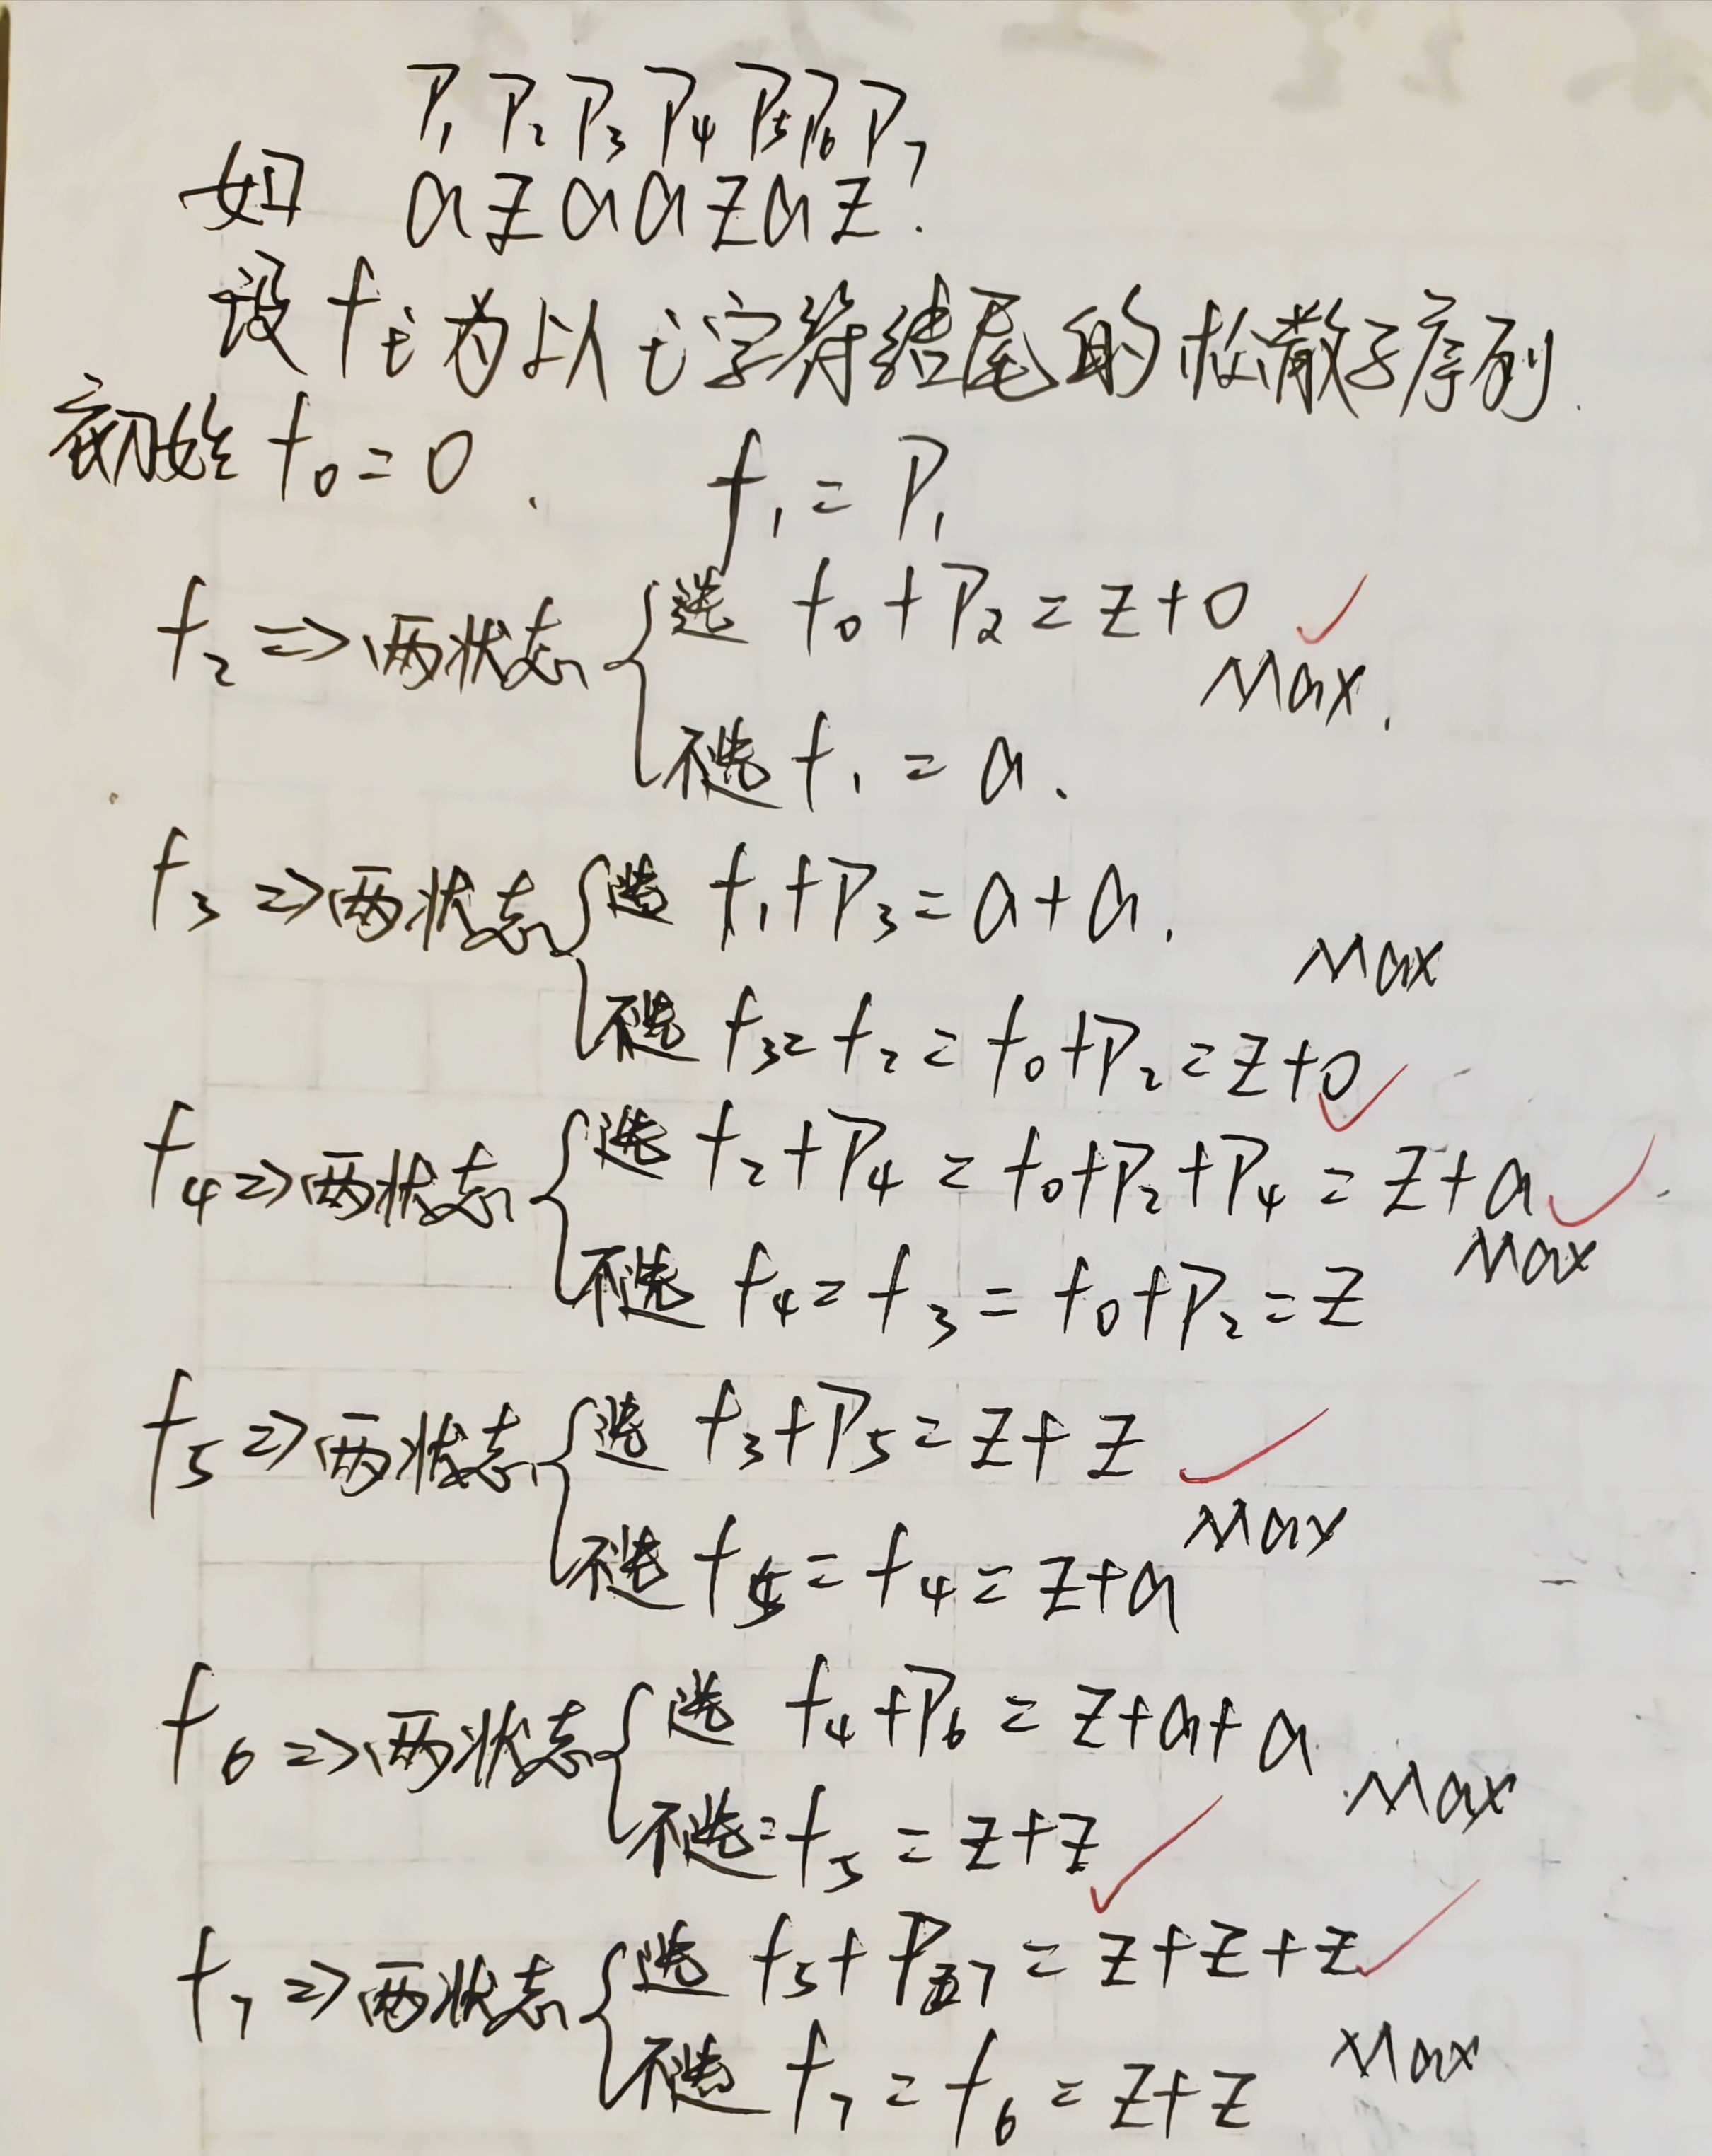 P₁ P₂ P₃ P₄ P₅ P₆ P₇
如 a z a a z a z.
设 fi 为以 i 字符结尾的松散子序列.
初始 f₀ = 0. f₁ = P₁
f₂ => 两状态 { 选 f₀ + P₂ = z + 0 ✓
Max.
不选 f₁ = a.
f₃ => 两状态 { 选 f₁ + P₃ = a + a.
Max
不选 f₃ = f₂ = f₀ + P₂ = z + 0 ✓
f₄ => 两状态 { 选 f₂ + P₄ = f₀ + P₂ + P₄ = z + a ✓
Max
不选 f₄ = f₃ = f₀ + P₂ = z
f₅ => 两状态 { 选 f₃ + P₅ = z + z ✓
Max
不选 f₅ = f₄ = z + a
f₆ => 两状态 { 选 f₄ + P₆ = z + a + a
Max
不选 = f₅ = z + z ✓
f₇ => 两状态 { 选 f₅ + P₇ = z + z + z ✓
Max
不选 f₇ = f₆ = z + z